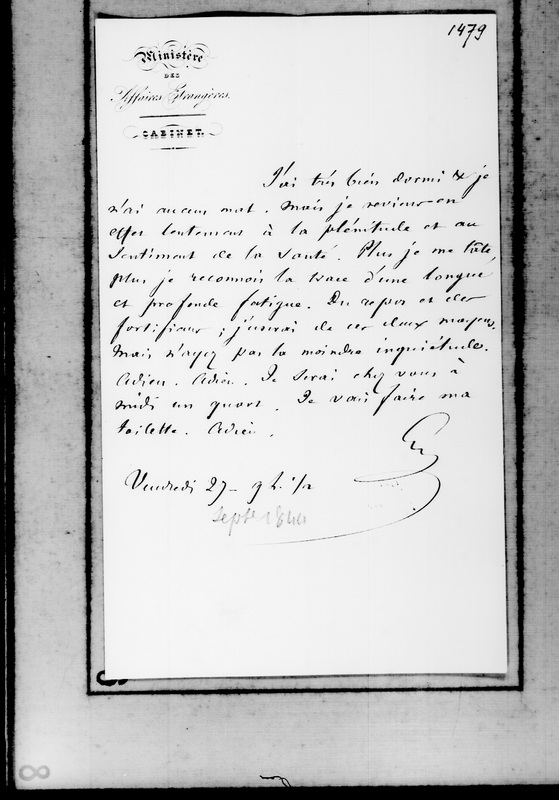 1479
Ministère
DES
Affaires Etrangères.
CABINET.
J'ai très bien dormi & je
n'ai aucun mal. Mais je reviens en
effet lentement à la plénitude et au
sentiment de la santé. Plus je me tâte,
plus je reconnois la trace d'une longue
et profonde fatigue. Du repos et des
fortifians ; j'userai de ces deux moyens.
Mais n'ayez pas la moindre inquiétude.
Adieu. Adieu. Je serai chez vous à
midi un quart. Je vais faire ma
toilette. Adieu.
G
Vendredi 27 - 9 h. 1/2
Septe 1844
8